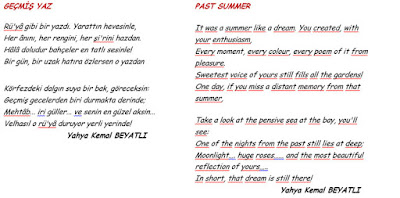 GEÇMİŞ YAZ
Rü'yâ gibi bir yazdı. Yarattın hevesinle,
Her ânını, her rengini, her şi'rini hazdan.
Hâlâ doludur bahçeler en tatlı sesinle!
Bir gün, bir uzak hatıra özlersen o yazdan
Körfezdeki dalgın suya bir bak, göreceksin:
Geçmiş gecelerden biri durmakta derinde;
Mehtâb... iri güller... ve senin en güzel aksin...
Velhasıl o rü'yâ duruyor yerli yerinde!
Yahya Kemal BEYATLI
PAST SUMMER
It was a summer like a dream. You created, with
your enthusiasm,
Every moment, every colour, every poem of it from
pleasure.
Sweetest voice of yours still fills all the gardens!
One day, if you miss a distant memory from that
summer,
Take a look at the pensive sea at the bay, you'll
see:
One of the nights from the past still lies at deep;
Moonlight.... huge roses..... and the most beautiful
reflection of yours.....
In short, that dream is still there!
Yahya Kemal BEYATLI